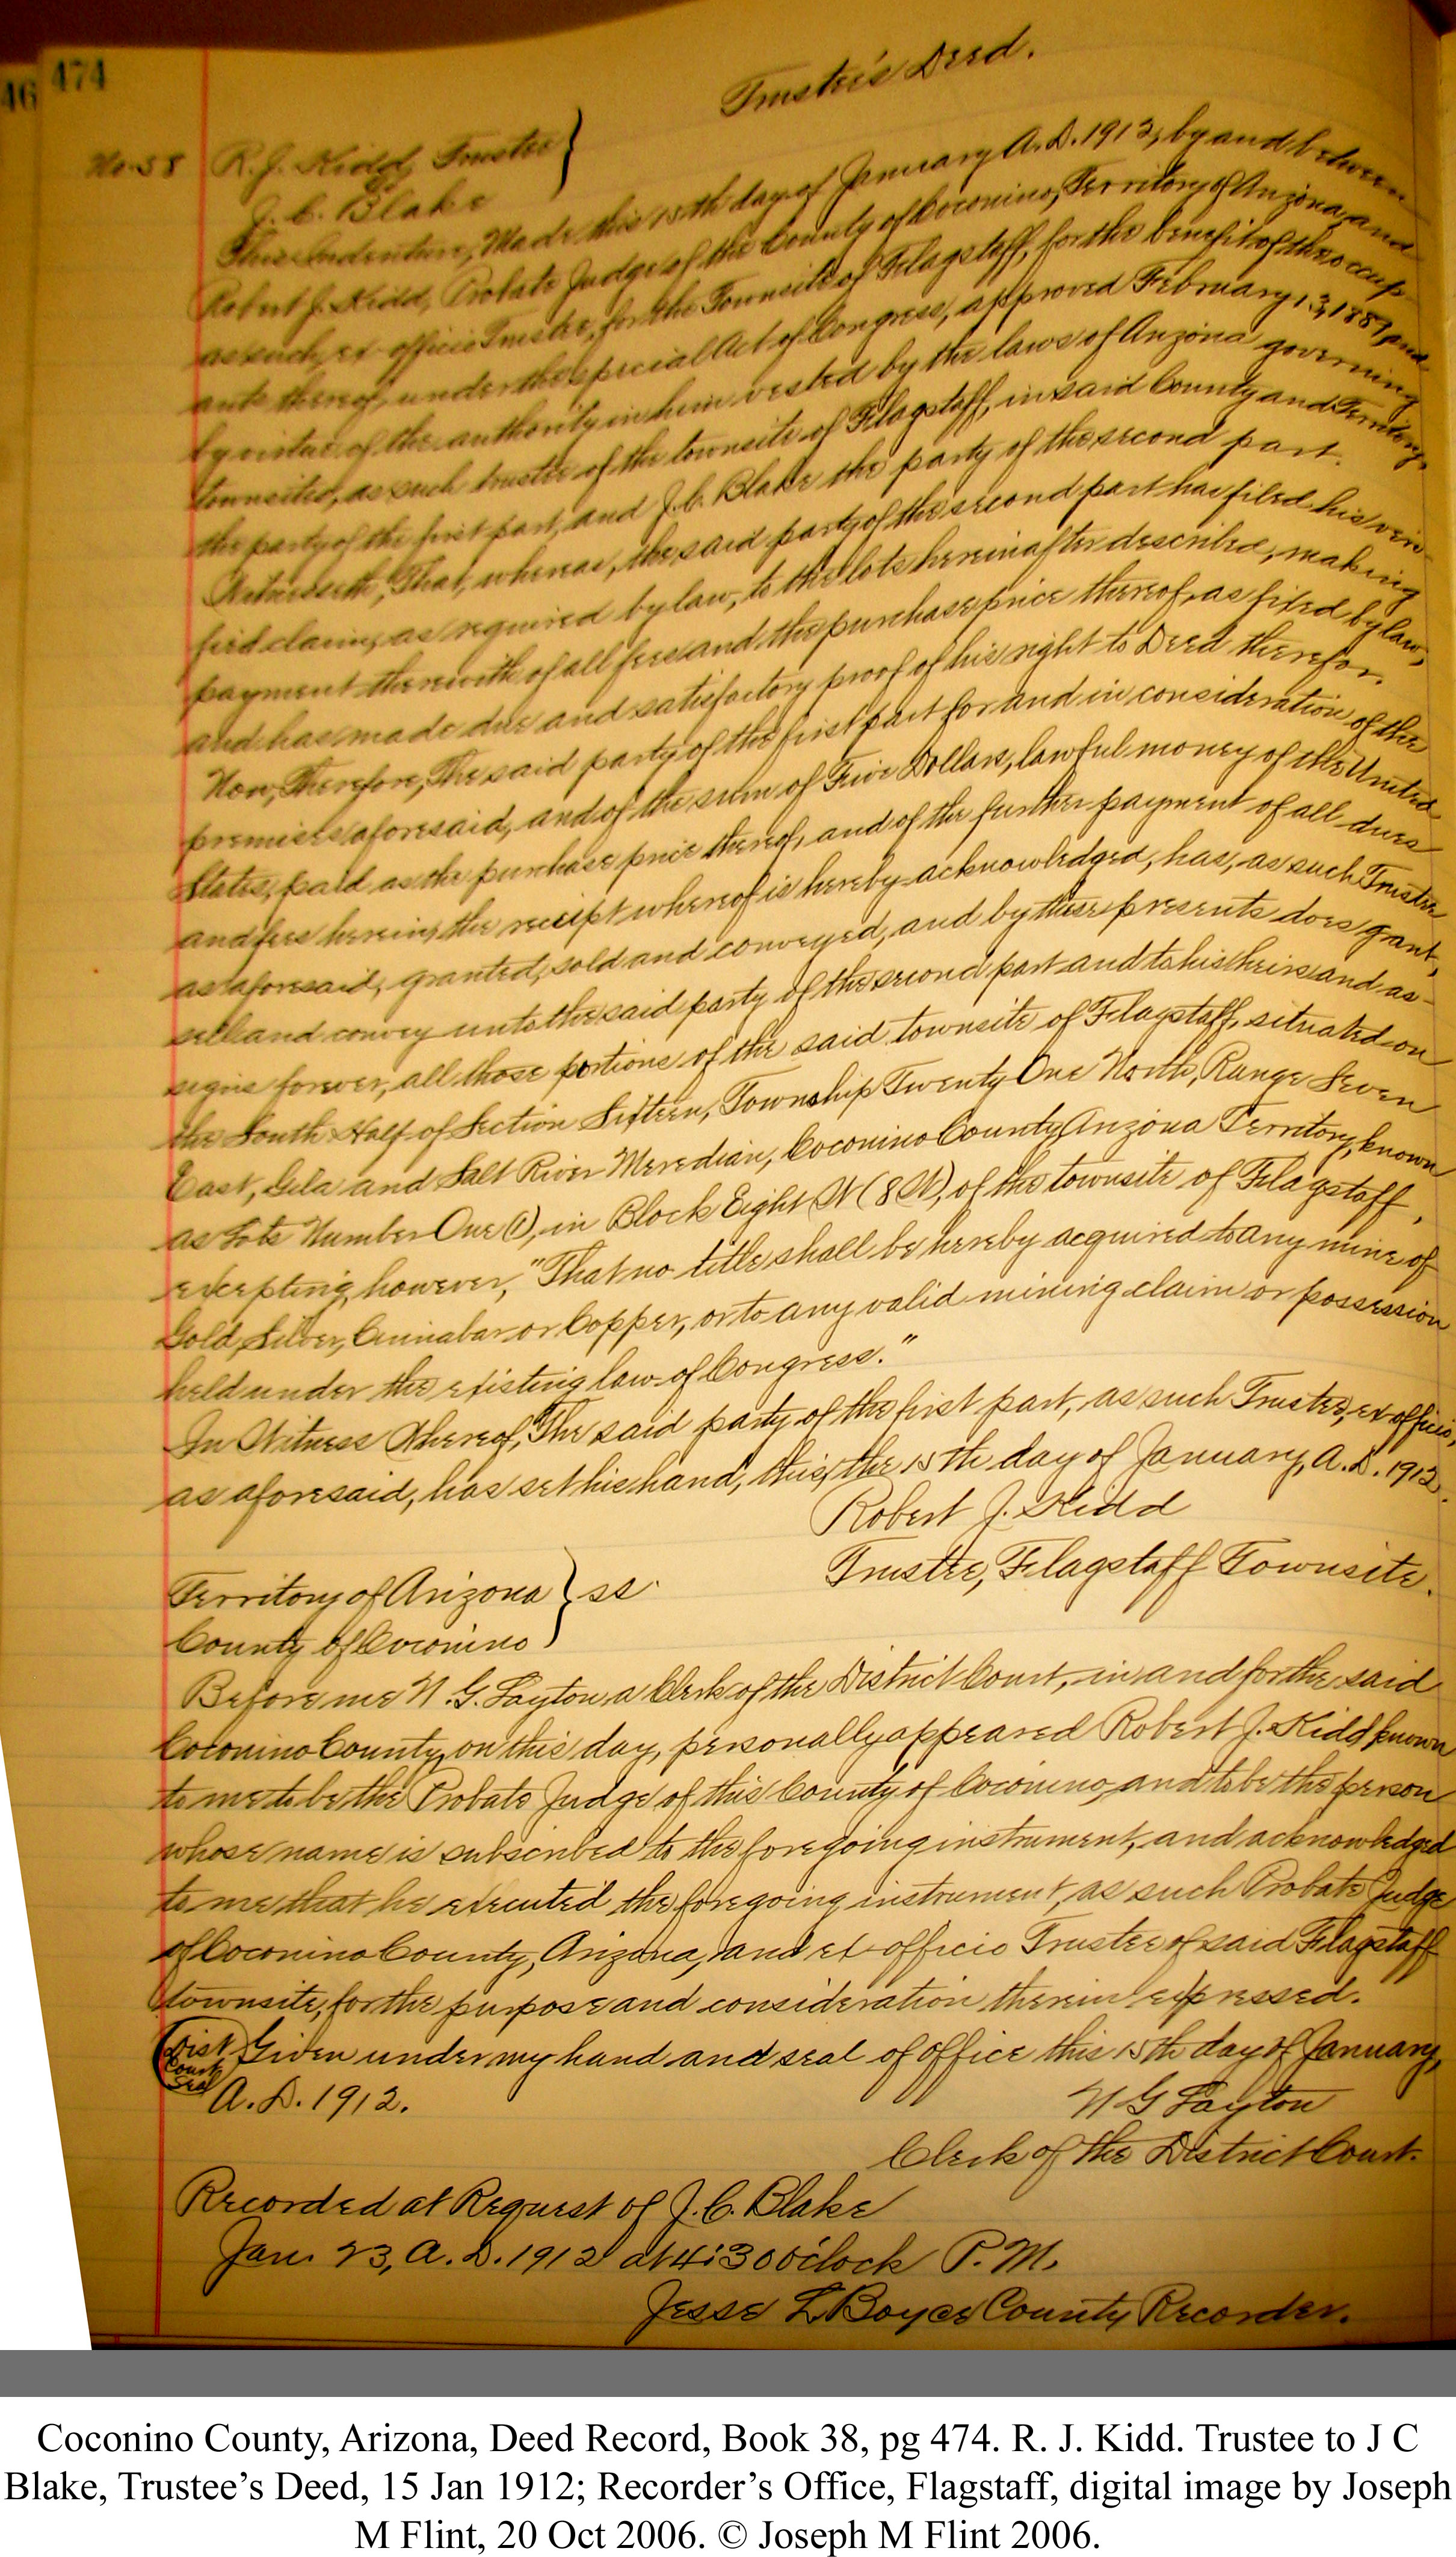 46 474
Trustee's Deed.
No. 58 R. J. Kidd, Trustee
J. C. Blake
This Indenture, Made this 15th day of January A. D. 1912, by and between
Robert J. Kidd, Probate Judge of the County of Coconino, Territory of Arizona, and
as such, ex officio Trustee, for the Townsite of Flagstaff, for the benefit of the occup
ants thereof, under the special Act of Congress, approved February 13, 1889, and
by virtue of the authority in him vested by the laws of Arizona governing
townsites, as such trustee of the townsite of Flagstaff, in said County and Territory
the party of the first part, and J. C. Blake the party of the second part.
Witnesseth, That, whereas, the said party of the second part has filed his veri-
fied claim, as required by law, to the lots hereinafter described, making
payment therewith of all fees and the purchase price thereof, as fixed by law,
and has made due and satisfactory proof of his right to Deed therefor.
Now, Therefore, The said party of the first part for and in consideration of the
premises aforesaid, and of the sum of Five Dollars, lawful money of the United
States, paid as the purchase price thereof, and of the further payment of all dues
and fees herein, the receipt whereof is hereby acknowledged, has, as such Trustee
as aforesaid, granted, sold and conveyed, and by these presents does grant,
sell and convey unto the said party of the second part and to his heirs and as-
signs forever, all those portions of the said townsite of Flagstaff, situated on
the South Half of Section Sixteen, Township Twenty One North, Range Seven
East, Gila and Salt River Meredian, Coconino County, Arizona Territory, known
as Lots Number One (1), in Block Eight W (8 W), of the townsite of Flagstaff,
excepting, however, "That no title shall be hereby acquired to any mine of
Gold, Silver, Cinnabar or Copper, or to any valid mining claim or possession
held under the existing law of Congress."
In Witness Whereof, The said party of the first part, as such Trustee, ex officio,
as aforesaid, has set his hand, this, the 15th day of January, A. D. 1912.
Robert J. Kidd
Trustee, Flagstaff Townsite.
Territory of Arizona } ss.
County of Coconino
Before me N. G. Layton a Clerk of the District Court, in and for the said
Coconino County, on this day, personally appeared Robert J. Kidd known
to me to be the Probate Judge of this County of Coconino, and to be the person
whose name is subscribed to the foregoing instrument, and acknowledged
to me that he executed the foregoing instrument, as such Probate Judge
of Coconino County, Arizona, and ex-officio Trustee of said Flagstaff
townsite, for the purpose and consideration therein expressed.
Dist Court Seal Given under my hand and seal of office this 15th day of January,
A. D. 1912.
N G Layton
Clerk of the District Court.
Recorded at Request of J. C. Blake
Jan. 23, A. D. 1912 at 4:30 o'clock P. M.
Jesse L Boyce County Recorder.
Coconino County, Arizona, Deed Record, Book 38, pg 474. R. J. Kidd. Trustee to J C
Blake, Trustee’s Deed, 15 Jan 1912; Recorder’s Office, Flagstaff, digital image by Joseph
M Flint, 20 Oct 2006. © Joseph M Flint 2006.